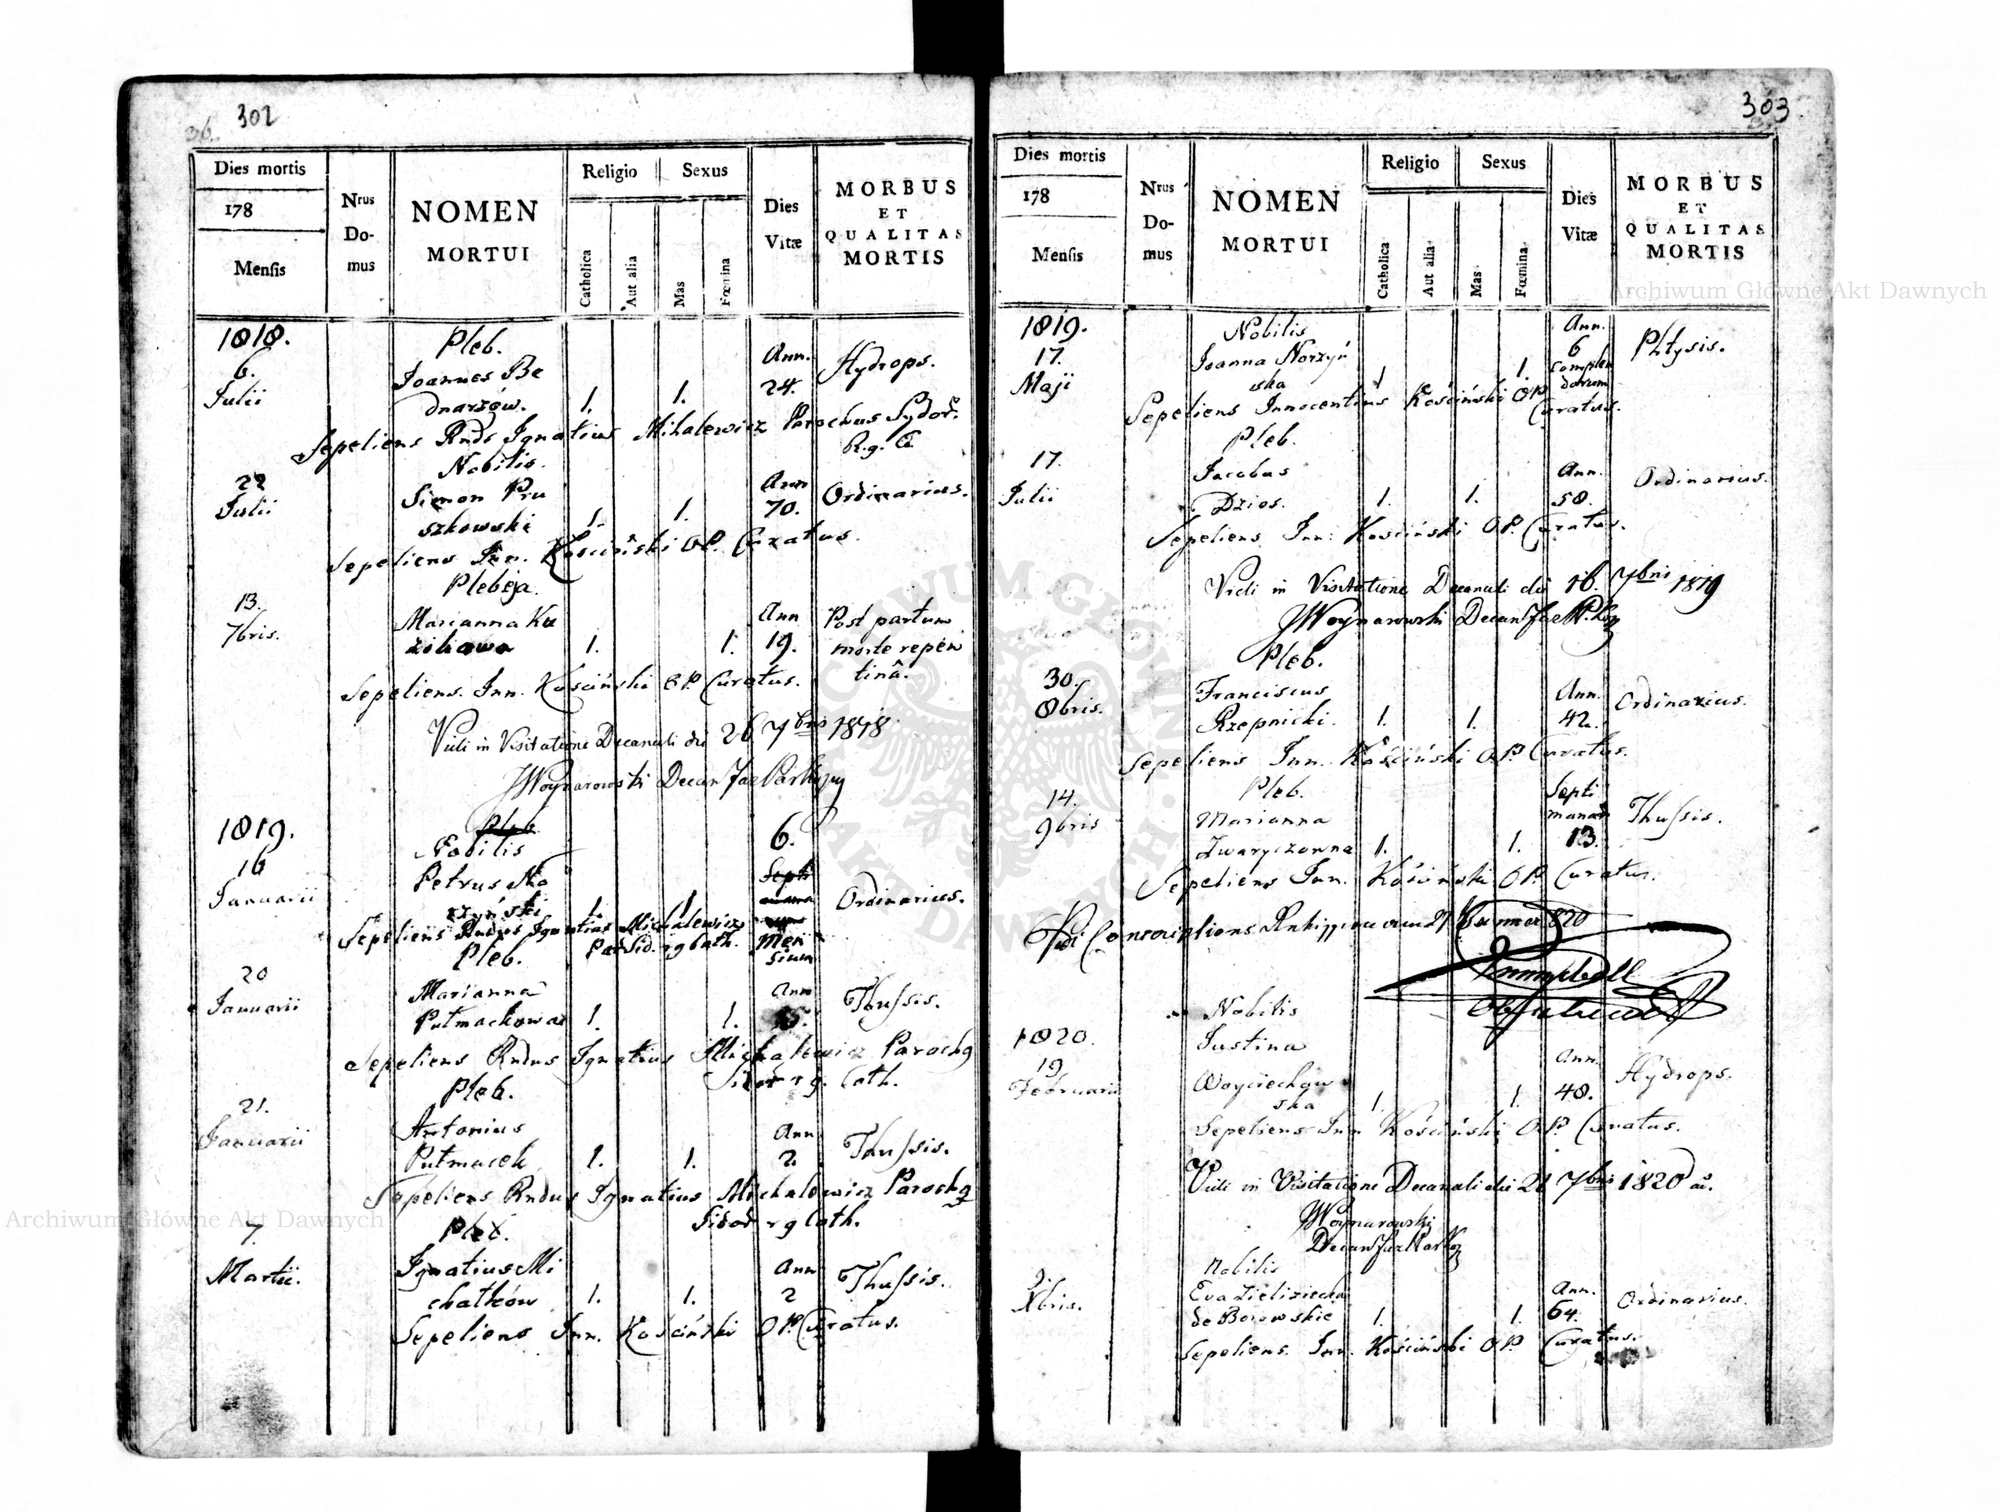 302
Dies mortis
178
Mensis
Nrus
Do-
mus
NOMEN
MORTUI
Religio
Catholica
Aut alia
Sexus
Mas
Fœmina
Dies
Vitæ
MORBUS
ET
QUALITAS
MORTIS
1818.
6.
Julii
Pleb.
Joannes Be
dnarzow.
1.
1.
Ann.
24.
Hydrops.
Sepeliens Rnds Ignatius Mihalewicz Parochus Sydor.
R.g.C
22
Julii
Nobilis.
Simon Pru
szkowski
1.
1.
Ann
70.
Ordinarius.
Sepeliens Inn. Kosciński OP. Curatus.
13.
7bris.
Plebeja.
Marianna Ku
1.
1.
Ann
19.
Post partum
morte repen
tinâ.
Sepeliens. Inn. Kosciński OP. Curatus.
Vidi in Visitatione Decanali die 26 7bris 1818
JWoynarowski Decan
1819.
16
Januarii
Pleb
Nobilis
Petrus No
rzyński
1.
1.
6.
Septi
mana
Men
sium
Ordinarius.
Sepeliens Rndus Ignatius Michalewicz
Par Sid. rg Cath.
20
Januarii
Pleb.
Marianna
Putmackowa
1.
1.
Ann
Thussis.
Sepeliens Rndus Ignatius Michalewicz Parochg
Sidor rg. Cath.
21.
Januarii
Pleb.
Antonius
Putmacek
1.
1.
Ann
2.
Thussis.
Sepeliens Rndus Ignatius Michalewicz Parochg
Sidor rg Cath.
7.
Martii.
Pleb.
Ignatius Mi
chatków
1.
1.
Ann
2
Thussis.
Sepeliens Inn. Kosciński OP. Curatus.
303
Dies mortis
178
Mensis
Nrus
Do-
mus
NOMEN
MORTUI
Religio
Catholica
Aut alia
Sexus
Mas
Fœmina
Dies
Vitæ
MORBUS
ET
QUALITAS
MORTIS
1819.
17.
Maji
Nobilis
Joanna Norzyń
ska
1
1.
Ann.
6
complen
dorum
Phtysis.
Sepeliens Innocentius Kościński OP.
Curatus.
17.
Julii
Pleb.
Jacobus
Dzios.
1.
1.
Ann.
58.
Ordinarius.
Sepeliens Inn: Kosciński OP. Curatus.
Vidi in Visitatione Decanali die 16. 7bris 1819
JWoynarowski Decan
30.
8bris.
Pleb.
Franciscus
Rzepnicki.
1.
1.
Ann.
42.
Ordinarius.
Sepeliens Inn. Kościński OP. Curatus.
14.
9bris
Pleb.
Marianna
Zwaryczowna
1.
1.
Septi
manar
13.
Thussis.
Sepeliens Inn. Kościński OP. Curatus.
1820
1820.
19
Februarii
Nobilis
Justina
Woyciechow
ska
1.
1.
Ann.
48.
Hydrops.
Sepeliens Inn Kościński OP. Curatus.
Vidi in Visitatione Decanali die 21 7bris 1820 a.
JWoynarowski
Decan
2.
Xbris.
Nobilis
Eva Zieliniecka
de Borowskie
1.
1.
Ann.
64.
Ordinarius.
Sepeliens. Inn. Kościński OP. Curatus.
Archiwum Główne Akt Dawnych
Archiwum Główne Akt Dawnych
ARCHIWUM GŁÓWNE AKT DAWNYCH